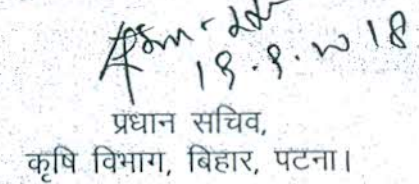 19.9.2018
प्रधान सचिव,
कृषि विभाग, बिहार, पटना।